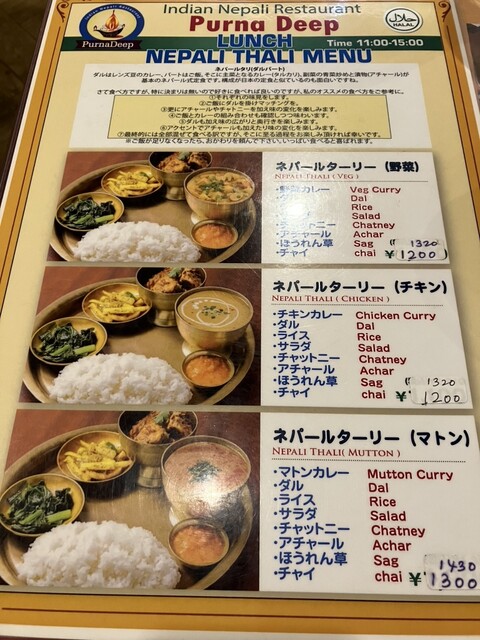 Indian Nepali Restaurant
Purna Deep
PurnaDeep
HALAL
LUNCH
Time 11:00-15:00
NEPALI THALI MENU
ネパールタリ(ダルバート)
ダルはレンズ豆のカレー、バートはご飯、そこに主菜となるカレー(タルカリ)、副菜の青菜炒めと漬物(アチャール)が
基本のネパール式定食です。構成が日本の定食と似ているのも面白いですね。
さて食べ方ですが、特に決まりは無いので好きに食べれば良いのですが、私のオススメの食べ方をご参考に。
①それぞれの味見をします。
②ご飯にダルを掛けマッチングを。
③更にアチャールやチャトニーを加え味の変化を楽しみます。
④ご飯とカレーの組み合わせも確認しつつ味わいます。
⑤ダルも加え味の広がりと奥行きを楽しみます。
⑥アクセントでアチャールも加えたり味の変化を楽しみます。
⑦最終的には全部混ぜて食べる訳ですが、そこに至る過程をお楽しみ頂ければ幸いです。
※ご飯が足りなくなったら、おかわりを頼んで下さい。いっぱい食べると喜ばれます。
ネパールターリー (野菜)
NEPALI THALI ( VEG )
・野菜カレー Veg Curry
Dal
Rice
Salad
Chatney
・アチャール Achar
・ほうれん草 Sag 1320
・チャイ chai ¥1200
ネパールターリー (チキン)
NEPALI THALI ( CHICKEN )
・チキンカレー Chicken Curry
・ダル Dal
・ライス Rice
・サラダ Salad
・チャットニー Chatney
・アチャール Achar
・ほうれん草 Sag 1320
・チャイ chai ¥1200
ネパールターリー (マトン)
NEPALI THALI( MUTTON )
・マトンカレー Mutton Curry
・ダル Dal
・ライス Rice
・サラダ Salad
・チャットニー Chatney
・アチャール Achar
・ほうれん草 Sag 1430
・チャイ chai ¥1300